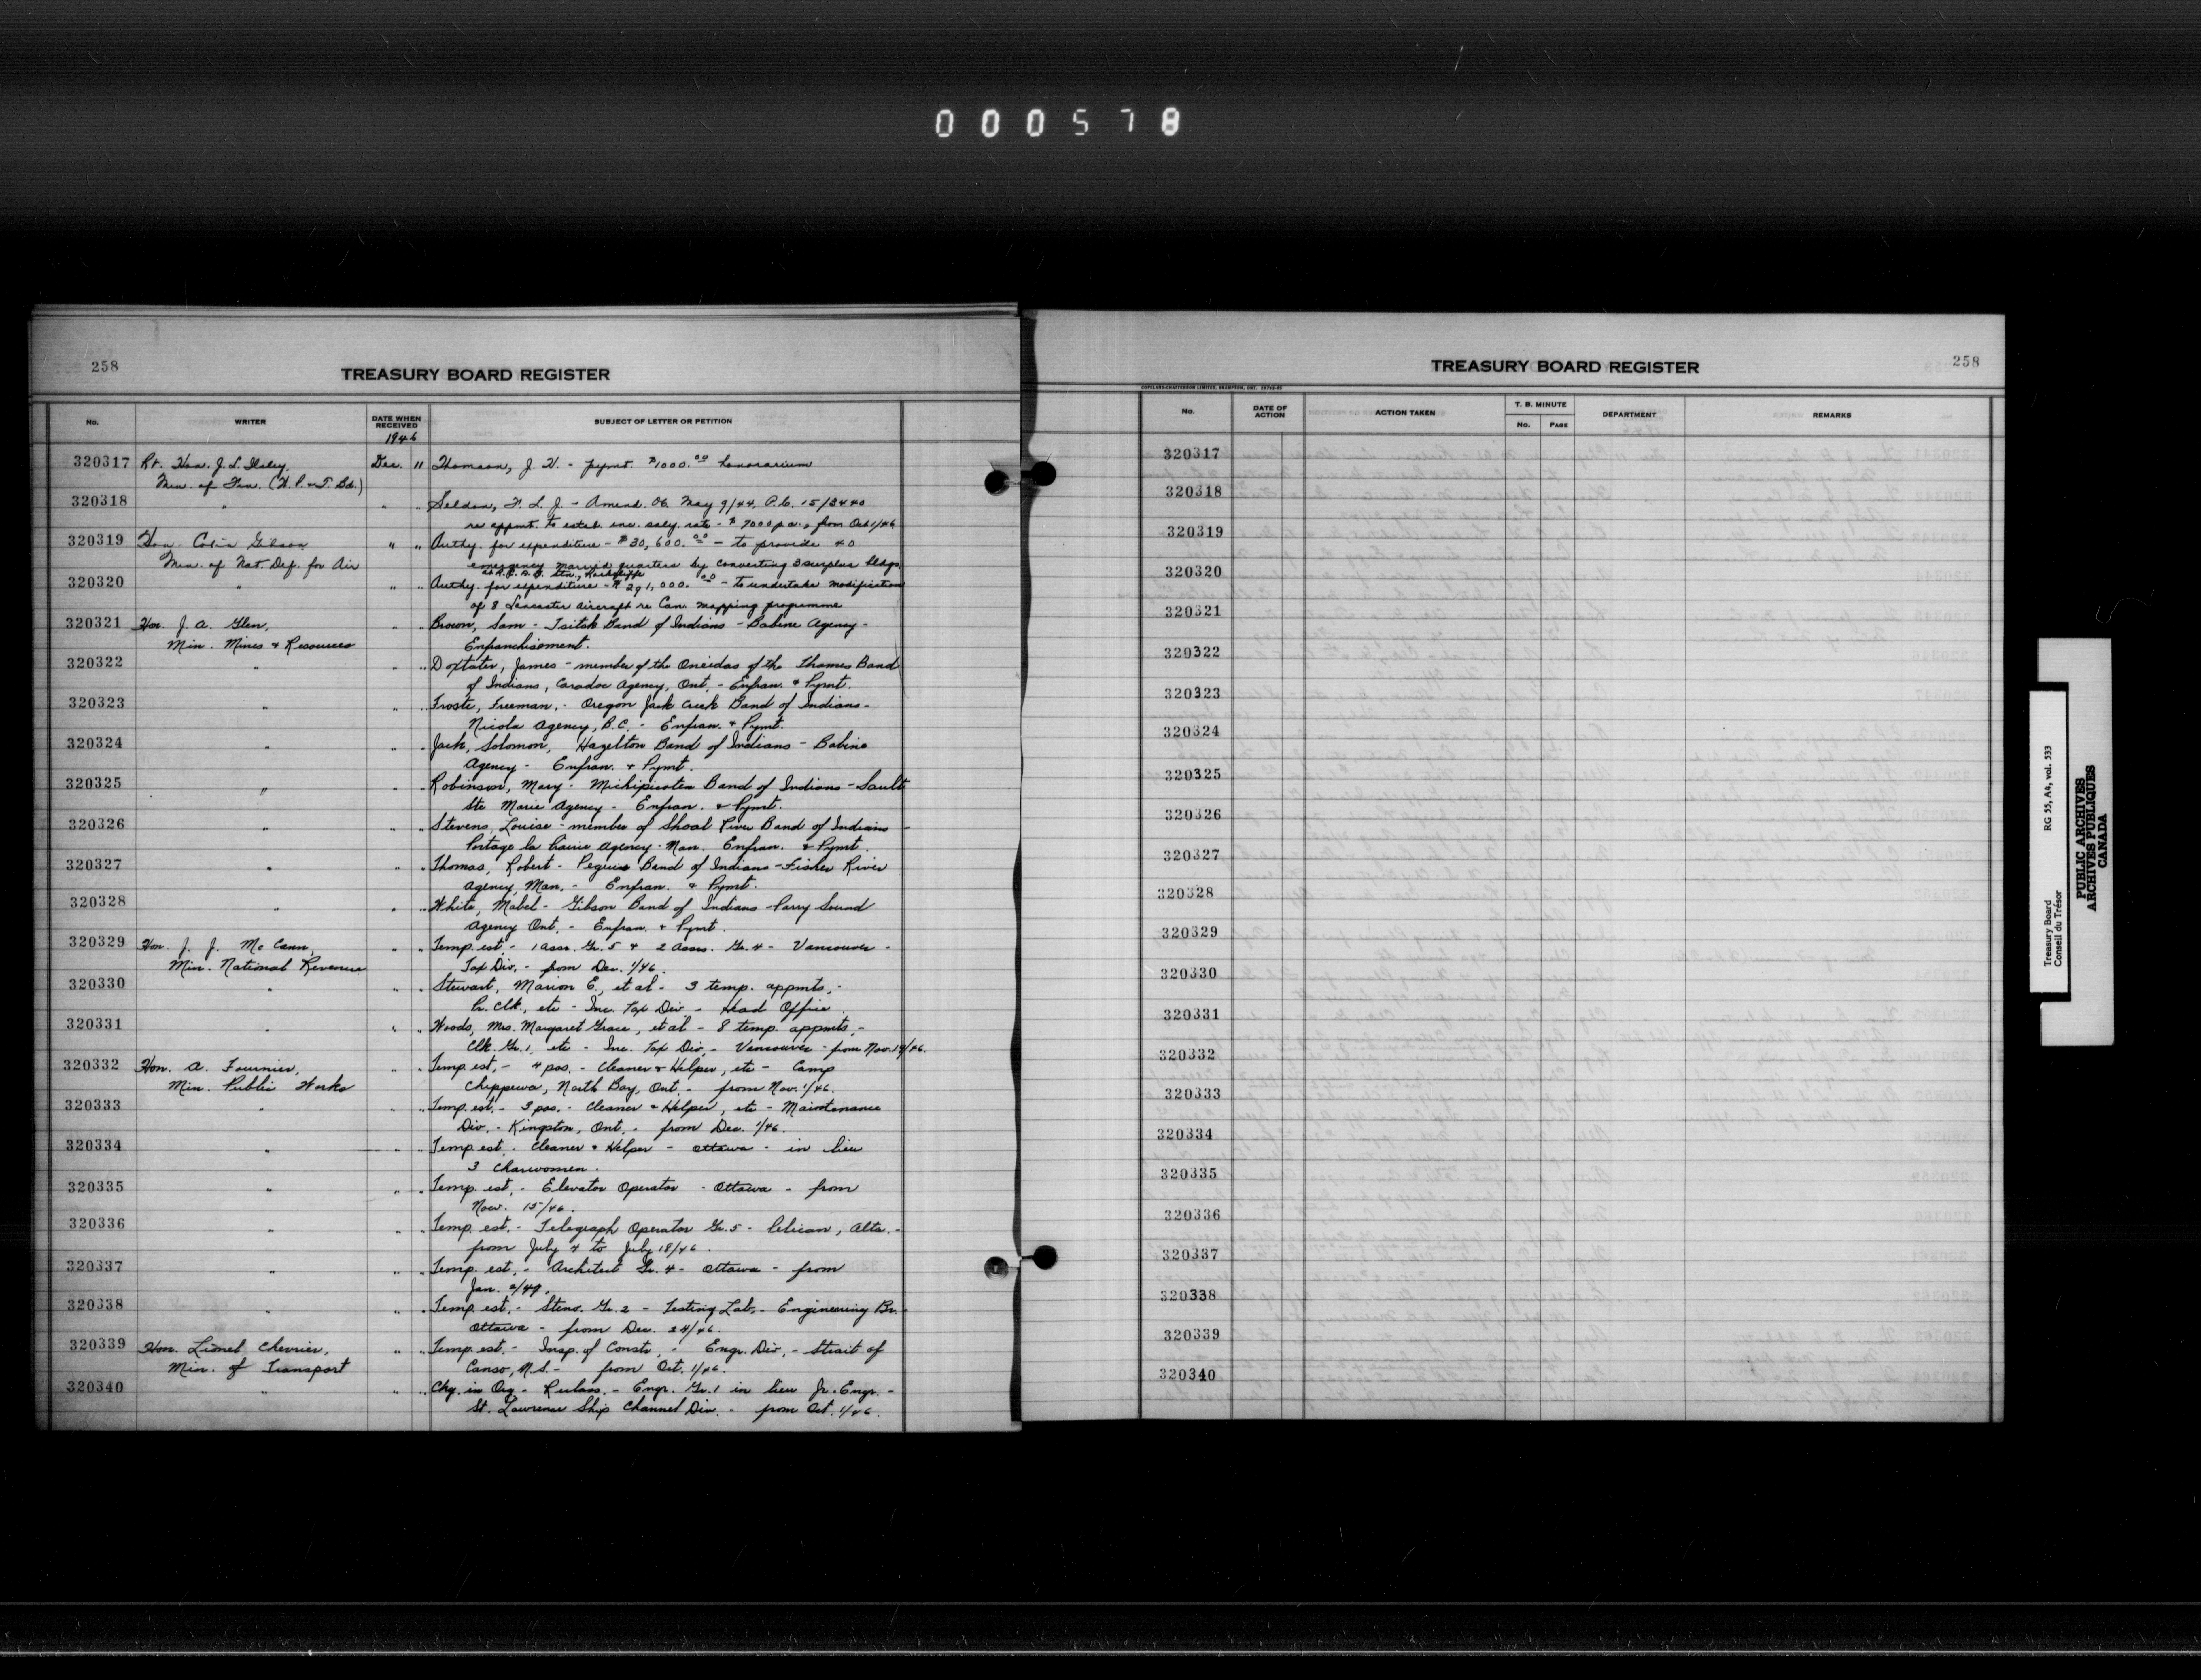 000578
258
TREASURY BOARD REGISTER
No. WRITER DATE WHEN RECEIVED SUBJECT OF LETTER OR PETITION
1946
320317 Rt. Hon. J. L. Ilsley, Dec. 11 Thomson, J. W. - pymt. $1000.00 honorarium
Min. of Fin. (W. P. & T. Bd.)
320318 " " " Seldon, F. L. J. - Amend. OC May 9/44, P.C. 15/3440
re appmt. to estab. inc. saly. rate - $7000 p.a., from Oct 1/46
320319 Hon. Colin Gibson " " Authy. for expenditure - $30,600.00 - to provide 40
Min. of Nat. Def. for Air emergency married quarters by converting 3 surplus bldgs.
at R.C.A.F. Stn., Rockcliffe
320320 " " " Authy. for expenditure - $291,000.00 - to undertake modification
of 8 Lancaster aircraft re Can. mapping programme
320321 Hon. J. A. Glen, " " Brown, Sam - Tsitsk Band of Indians - Babine Agency -
Min. Mines & Resources Enfranchisement.
320322 " " " Doxtater, James - member of the Oneidas of the Thames Band
of Indians, Caradoc Agency, Ont. - Enfran. & Pymt.
320323 " " " Froste, Freeman, - Oregon Jack Creek Band of Indians -
Nicola Agency, B.C. - Enfran. & Pymt.
320324 " " " Jack, Solomon, Hazelton Band of Indians - Babine
Agency - Enfran. & Pymt.
320325 " " " Robinson, Mary - Michipicoten Band of Indians - Sault
Ste Marie Agency - Enfran. & Pymt.
320326 " " " Stevens, Louise - member of Shoal River Band of Indians
Portage la Prairie Agency - Man. Enfran. & Pymt.
320327 " " " Thomas, Robert - Peguis Band of Indians - Fisher River
Agency, Man. - Enfran. & Pymt.
320328 " " " White, Mabel - Gibson Band of Indians - Parry Sound
Agency Ont. - Enfran. & Pymt.
320329 Hon. J. J. McCann, " " Temp. est - 1 Assr. Gr. 5 & 2 Assrs. Gr. 4 - Vancouver -
Min. National Revenue Tax Div. - from Dec. 1/46.
320330 " " " Stewart, Marion E., et al - 3 temp. appmts. -
Pr. Clk., etc - Inc. Tax Div - Head Office.
320331 " " " Woods, Mrs. Margaret Grace, et al - 8 temp. appmts. -
Clk. Gr. 1, etc - Inc. Tax Div. - Vancouver - from Nov. 19/46.
320332 Hon. A. Fournier, " " Temp est. - 4 pos. - Cleaner & Helper, etc - Camp
Min. Public Works Chippewa, North Bay, Ont. - from Nov. 1/46.
320333 " " " Temp. est. - 3 pos. - Cleaner & Helper, etc - Maintenance
Div. - Kingston, Ont. - from Dec. 1/46.
320334 " " " Temp est. - Cleaner & Helper - Ottawa - in lieu
3 Charwomen.
320335 " " " Temp est. - Elevator Operator - Ottawa - from
Nov. 15/46.
320336 " " " Temp. est. - Telegraph Operator Gr. 5 - Pelican, Alta. -
from July 4 to July 18/46.
320337 " " " Temp. est. - Architect Gr. 4 - Ottawa - from
Jan. 2/47.
320338 " " " Temp. est. - Steno. Gr. 2 - Testing Lab. - Engineering Br. -
Ottawa - from Dec. 24/46.
320339 Hon. Lionel Chevrier, " " Temp. est. - Insp. of Constr. - Engr. Div. - Strait of
Min. of Transport Canso, N.S. - from Oct. 1/46.
320340 " " " Chg. in Org - Reclass. - Engr. Gr. 1 in lieu Jr. Engr. -
St. Lawrence Ship Channel Div. - from Oct. 1/46.
TREASURY BOARD REGISTER
258
COPELAND-CHATTERSON LIMITED, BRAMPTON, ONT.
No. DATE OF ACTION ACTION TAKEN T. B. MINUTE No. PAGE DEPARTMENT REMARKS
320317
320318
320319
320320
320321
320322
320323
320324
320325
320326
320327
320328
320329
320330
320331
320332
320333
320334
320335
320336
320337
320338
320339
320340
Treasury Board RG 55, A4, vol. 533
Conseil du Trésor
PUBLIC ARCHIVES
ARCHIVES PUBLIQUES
CANADA